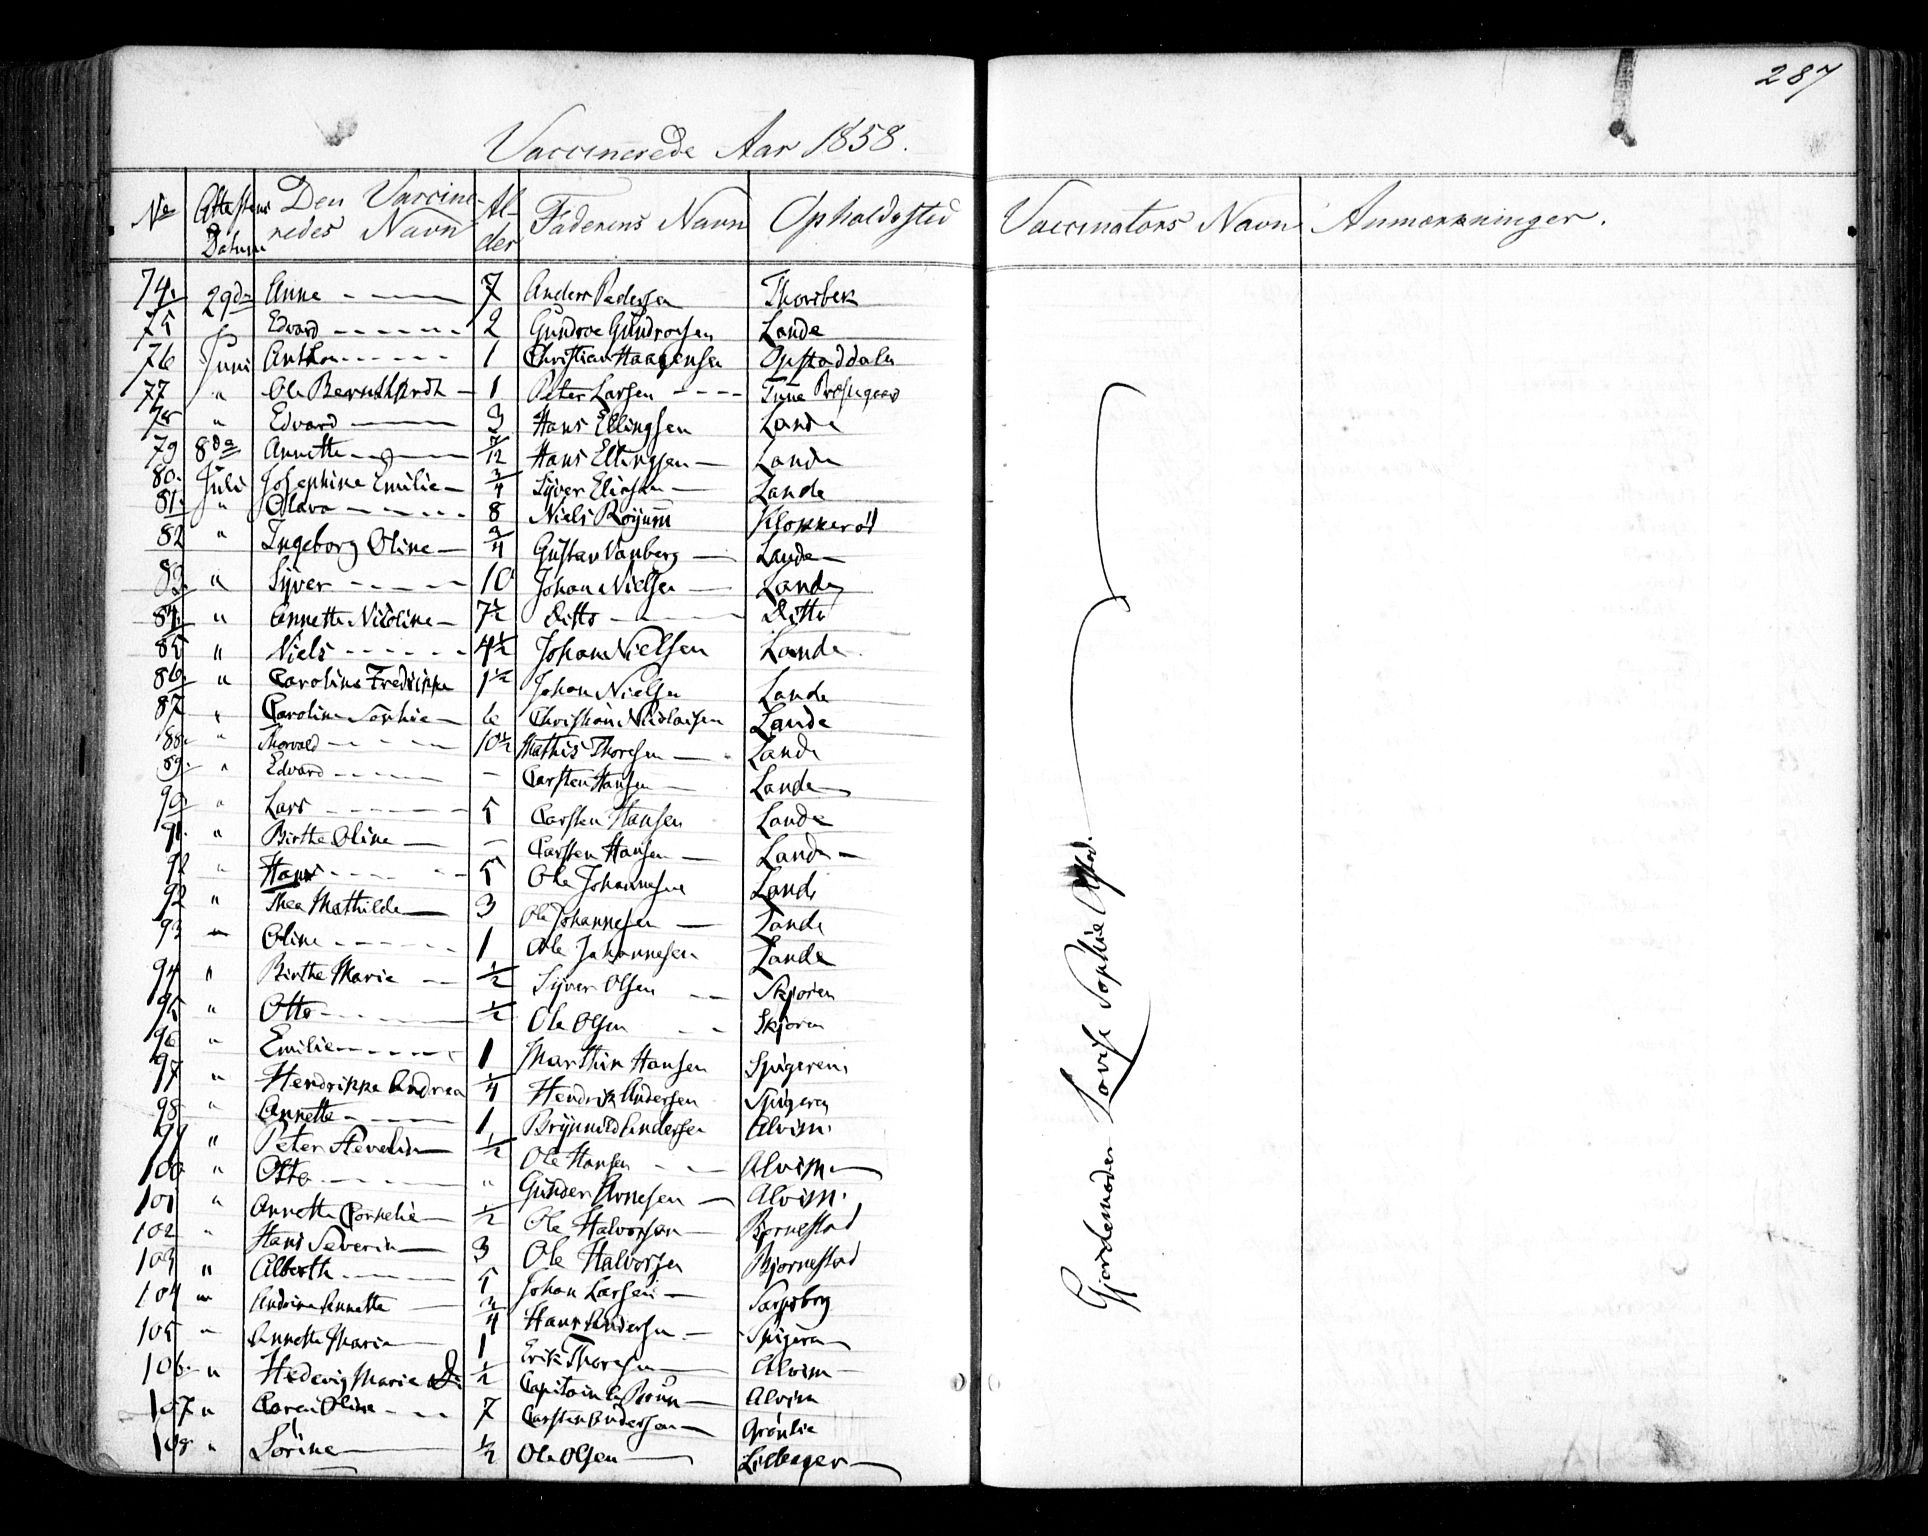 287
Vaccinerede Aar 1858.
No Attestens Datum Den Vaccineredes Navn Alder Faderens Navn Opholdssted Vaccinators Navn Anmærkninger.
74. 29de Anne 7 Anders Pedersen Thorsbek
75 Edvard 2 Gundroe Gundrosen Lande
76 Juni Anthon 1 Christian Haagensen Opstaddalen
77 " Ole Bernthardt 1 Peter Larsen Tune Præstgaard
78 " Edvard 3 Hans Ellingsen Lande
79 8de Annette 7/12 Hans Ellingsen Lande
80. Juli Josephine Emilie 3/4 Syver Eliasen Lande
81 " Olava 8 Niels Röyum Klokkeröd
82 " Ingeborg Oline 3/4 Gustav Vanberg Lande
83. " Syver 10 Johan Nielsen Lande
84. " Annette Nicoline 7½ Ditto Ditto
85 " Niels 4½ Johan Nielsen Lande
86. " Caroline Fredrikke 1½ Johan Nielsen Lande
87 " Caroline Sophie 6 Christian Nicolaisen Lande
88. " Thorvald 10½ Mathis Thoresen Lande
89. " Edvard – Carsten Hansen Lande
90 " Lars 5 Carsten Hansen Lande
91. " Birthe Oline – Carsten Hansen Lande
92 " Hans 5 Ole Johannesen Lande
92 " Thea Mathilde 3 Ole Johannesen Lande
93 " Oline 1 Ole Johannesen Lande
94 " Birthe Marie ½ Syver Olsen Skjøren
95 " Otto ½ Ole Olsen Skjøren
96 " Emilie 1 Marthin Hansen Spigeren
97 " Hendrikke Andrea 1/4 Hendrik Andersen Spigeren
98 " Annette 1 Brynild Andersen Alvim
99 " Peter Severin ½ Ole Hansen Alvim
100 " Otto " Gunder Arnesen Alvim.
101 " Annette Cornelie ½ Ole Halvorsen Bjørnestad
102 " Hans Severin 3 Ole Halvorsen Bjørnestad
103 " Alberth 5 Johan Larsen Sarpsborg
104 " Andrine Annette 3/4 Hans Andersen Spigeren
105 " Annette Marie 1 Erik Thoresen Alvim
106. " Hedevig Marie ½ Capitain Brun Alvim
107 " Caren Oline 7 Carsten Andersen Grønlie
108 " Lorine ½ Ole Olsen
Gjordemoder Lovise Sophie